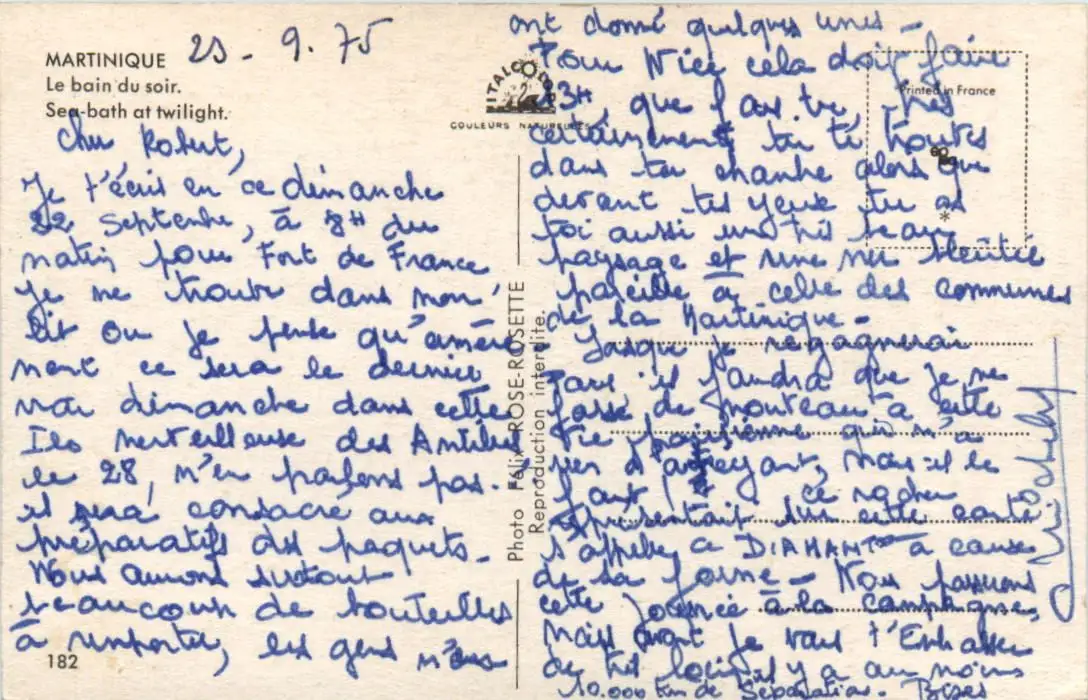 MARTINIQUE
Le bain du soir.
Sea-bath at twilight.
- 9. 75
ITALCOLOR
COULEURS NATURELLES
Printed in France
Cher Robert,
Je t'écris en ce dimanche
22 Septembre, à 8H du
matin pour Fort de France
Je me trouve dans mon
lit ou je pense qu'amère
ment ce sera le dernier
vrai dimanche dans cette
Ile merveilleuse des Antilles
le 28, n'en parlons pas.
il sera consacré aux
préparatifs des paquets -
Nous aurons surtout
beaucoup de bouteilles
à remporter, les gens m'ens
182
Photo Félix ROSE-ROSETTE
Reproduction interdite.
ont donné quelques unes -
Pour Nice cela doit faire
13H, que fais tu, très
certainement tu te trouves
dans ta chambre alors que
devant tes yeux tu as
toi aussi un très beau
paysage et une mer bleutée
pareille à celle des communes
de la Martinique -
Lorsque je regagnerai
Paris il faudra que je me
fasse de nouveau à cette
Vie parisienne qui n'a
rien d'attrayant, mais il le
faut, ce rocher
représentait sur cette carte
s'appelle DIAMANT à cause
de sa forme - Nous passons
cette journée à la campagne,
Mais avant je vais t'Embrasser
de très loin il y a au moins
10.000 Km de Séparation - Bises